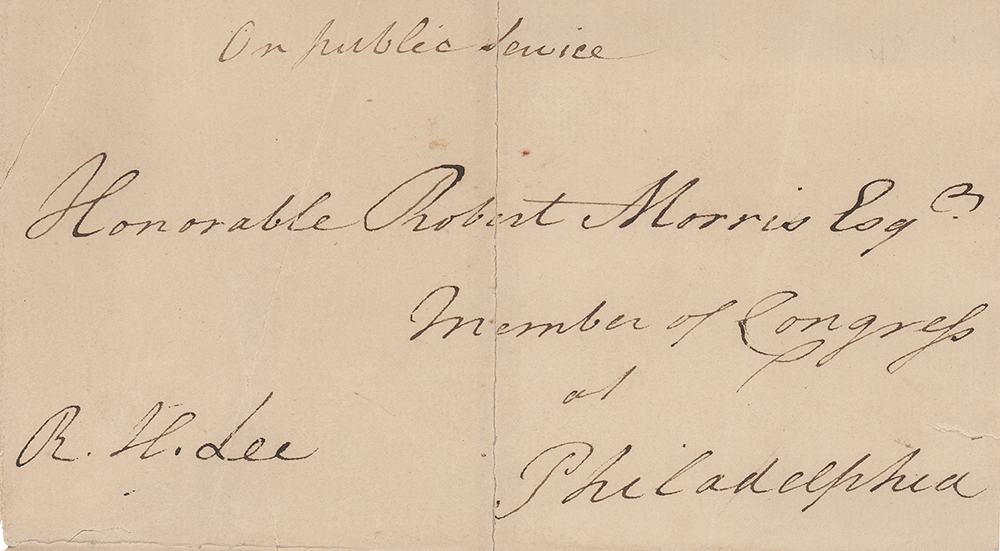 On public Service
Honorable Robert Morris Esqr.
Member of Congress
at
R. H. Lee
Philadelphia